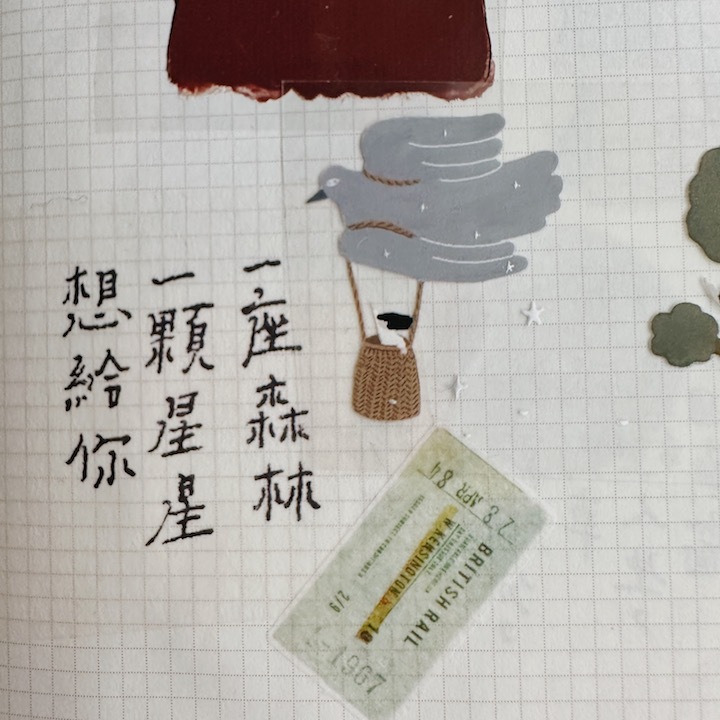 一座森林
一顆星星
想給你
28 APR 84
BRITISH RAIL
W. KENSINGTON
2/9